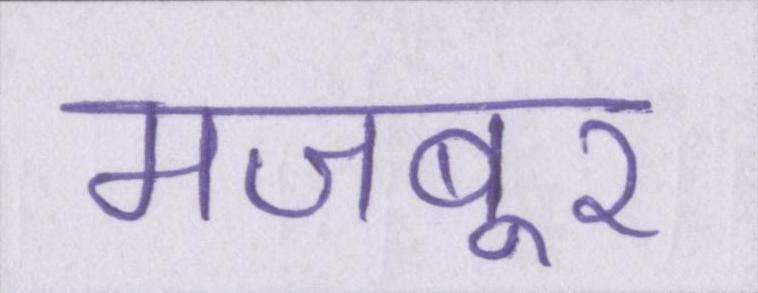 मजबूर